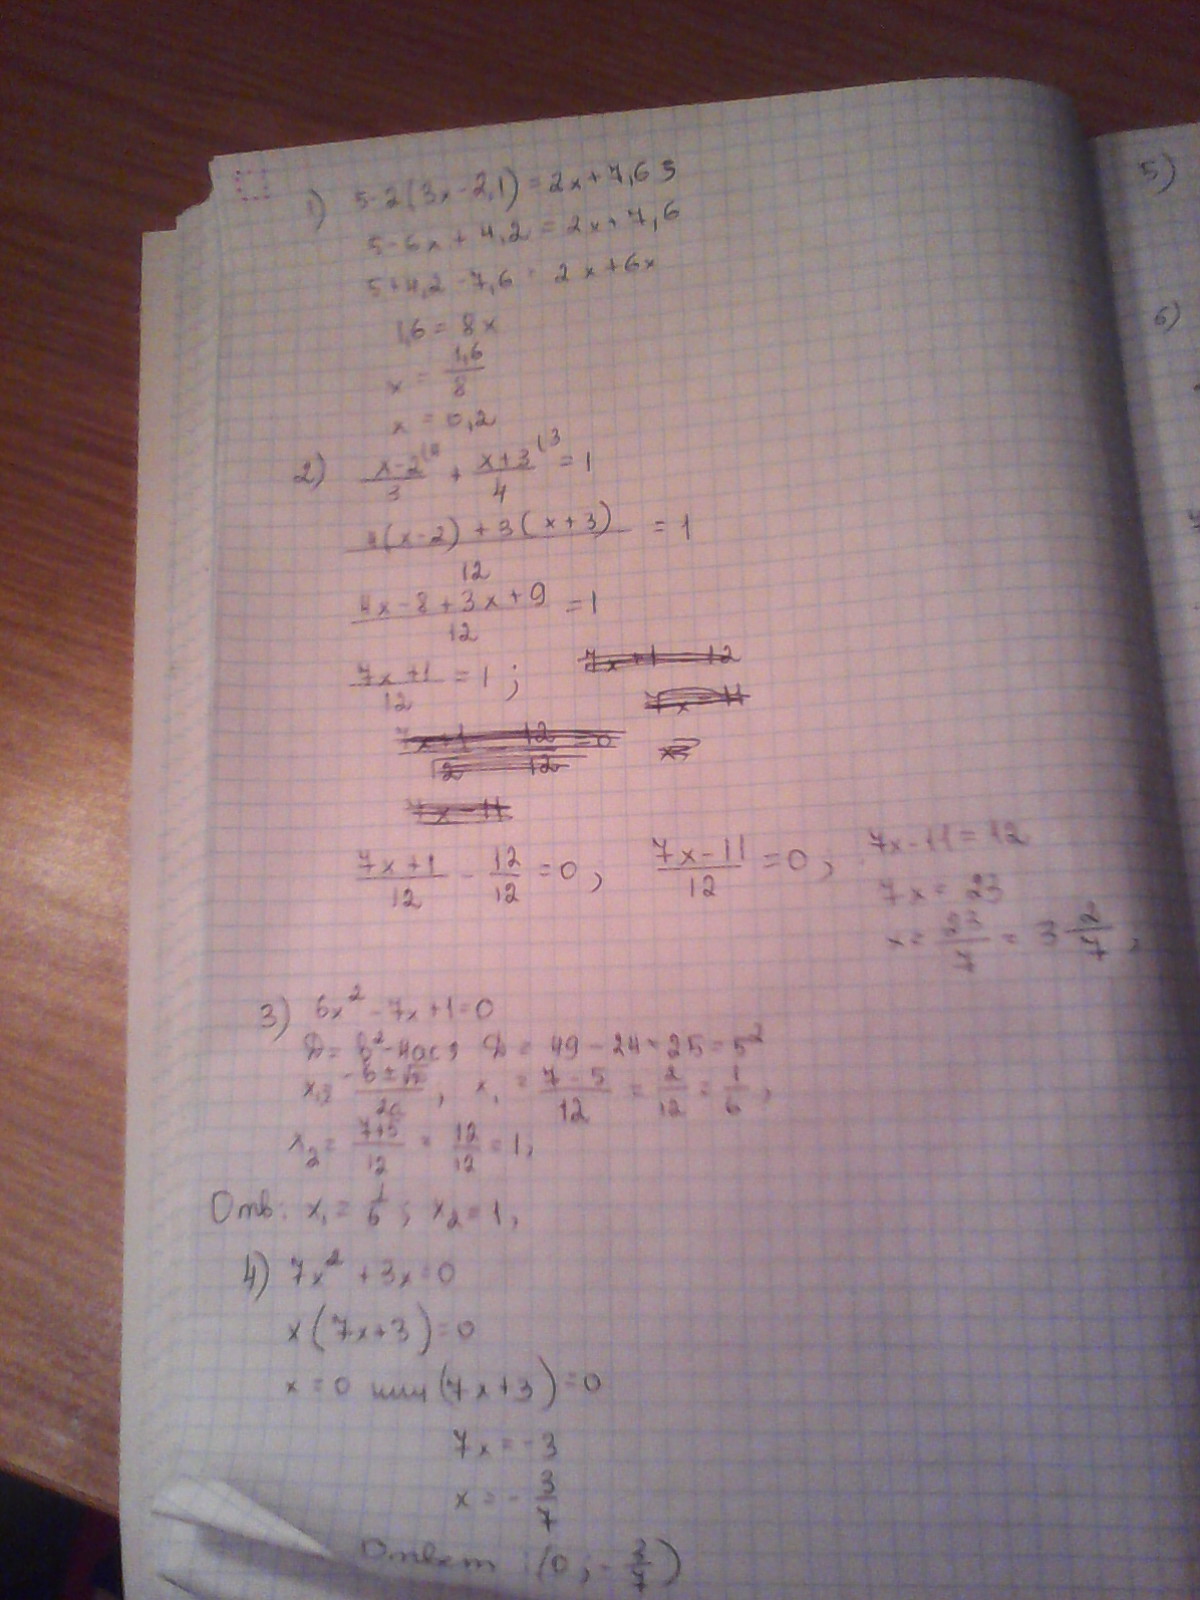 1) 5-2(3x-2,1)=2x+7,6;
5-6x+4,2=2x+7,6
5+4,2-7,6=2x+6x
1,6=8x
x=\frac{1,6}{8}
x=0,2
2) \frac{x-2}{3}^{(4}+\frac{x+3}{4}^{(3}=1
\frac{4(x-2)+3(x+3)}{12}=1
\frac{4x-8+3x+9}{12}=1
\frac{7x+1}{12}=1;
\frac{7x+1}{12}-\frac{12}{12}=0; \frac{7x-11}{12}=0; 7x-11=12
7x=23
x=\frac{23}{7}=3\frac{2}{7};
3) 6x²-7x+1=0
D=b²-4ac; D=49-24=25=5²
x=\frac{-b±√D}{2a}; x₁=\frac{7-5}{12}=\frac{2}{12}=\frac{1}{6};
x₂=\frac{7+5}{12}=\frac{12}{12}=1;
Отв: x₁=\frac{1}{6}; x₂=1;
4) 7x²+3x=0
x(7x+3)=0
x=0 или (7x+3)=0
7x=-3
x=-\frac{3}{7}
Ответ: (0;-\frac{3}{7})
5)
6)